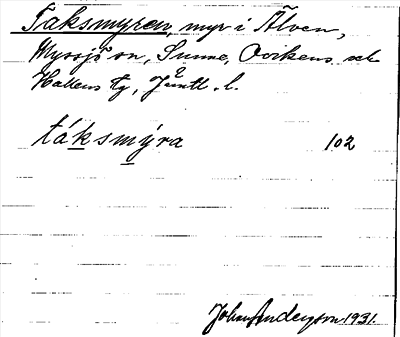 Taksmyren, myr i Älven,
Myssjö sn, Sunne, Ovikens och
Hallens tg, Jämtl. l.
táksmýra 102
John Anderson 1931.